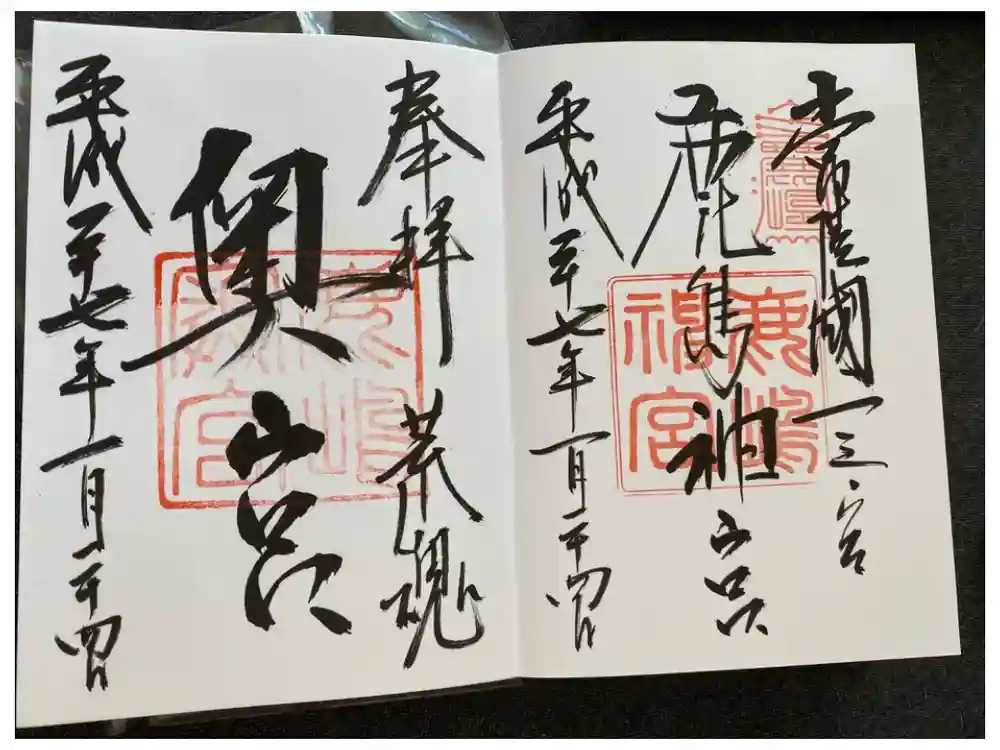 常陸國一之宮
鹿島神宮
鹿嶋神宮
平成二十七年一月二十四日
奉拝 荒魂
奥宮
平成二十七年一月二十四日